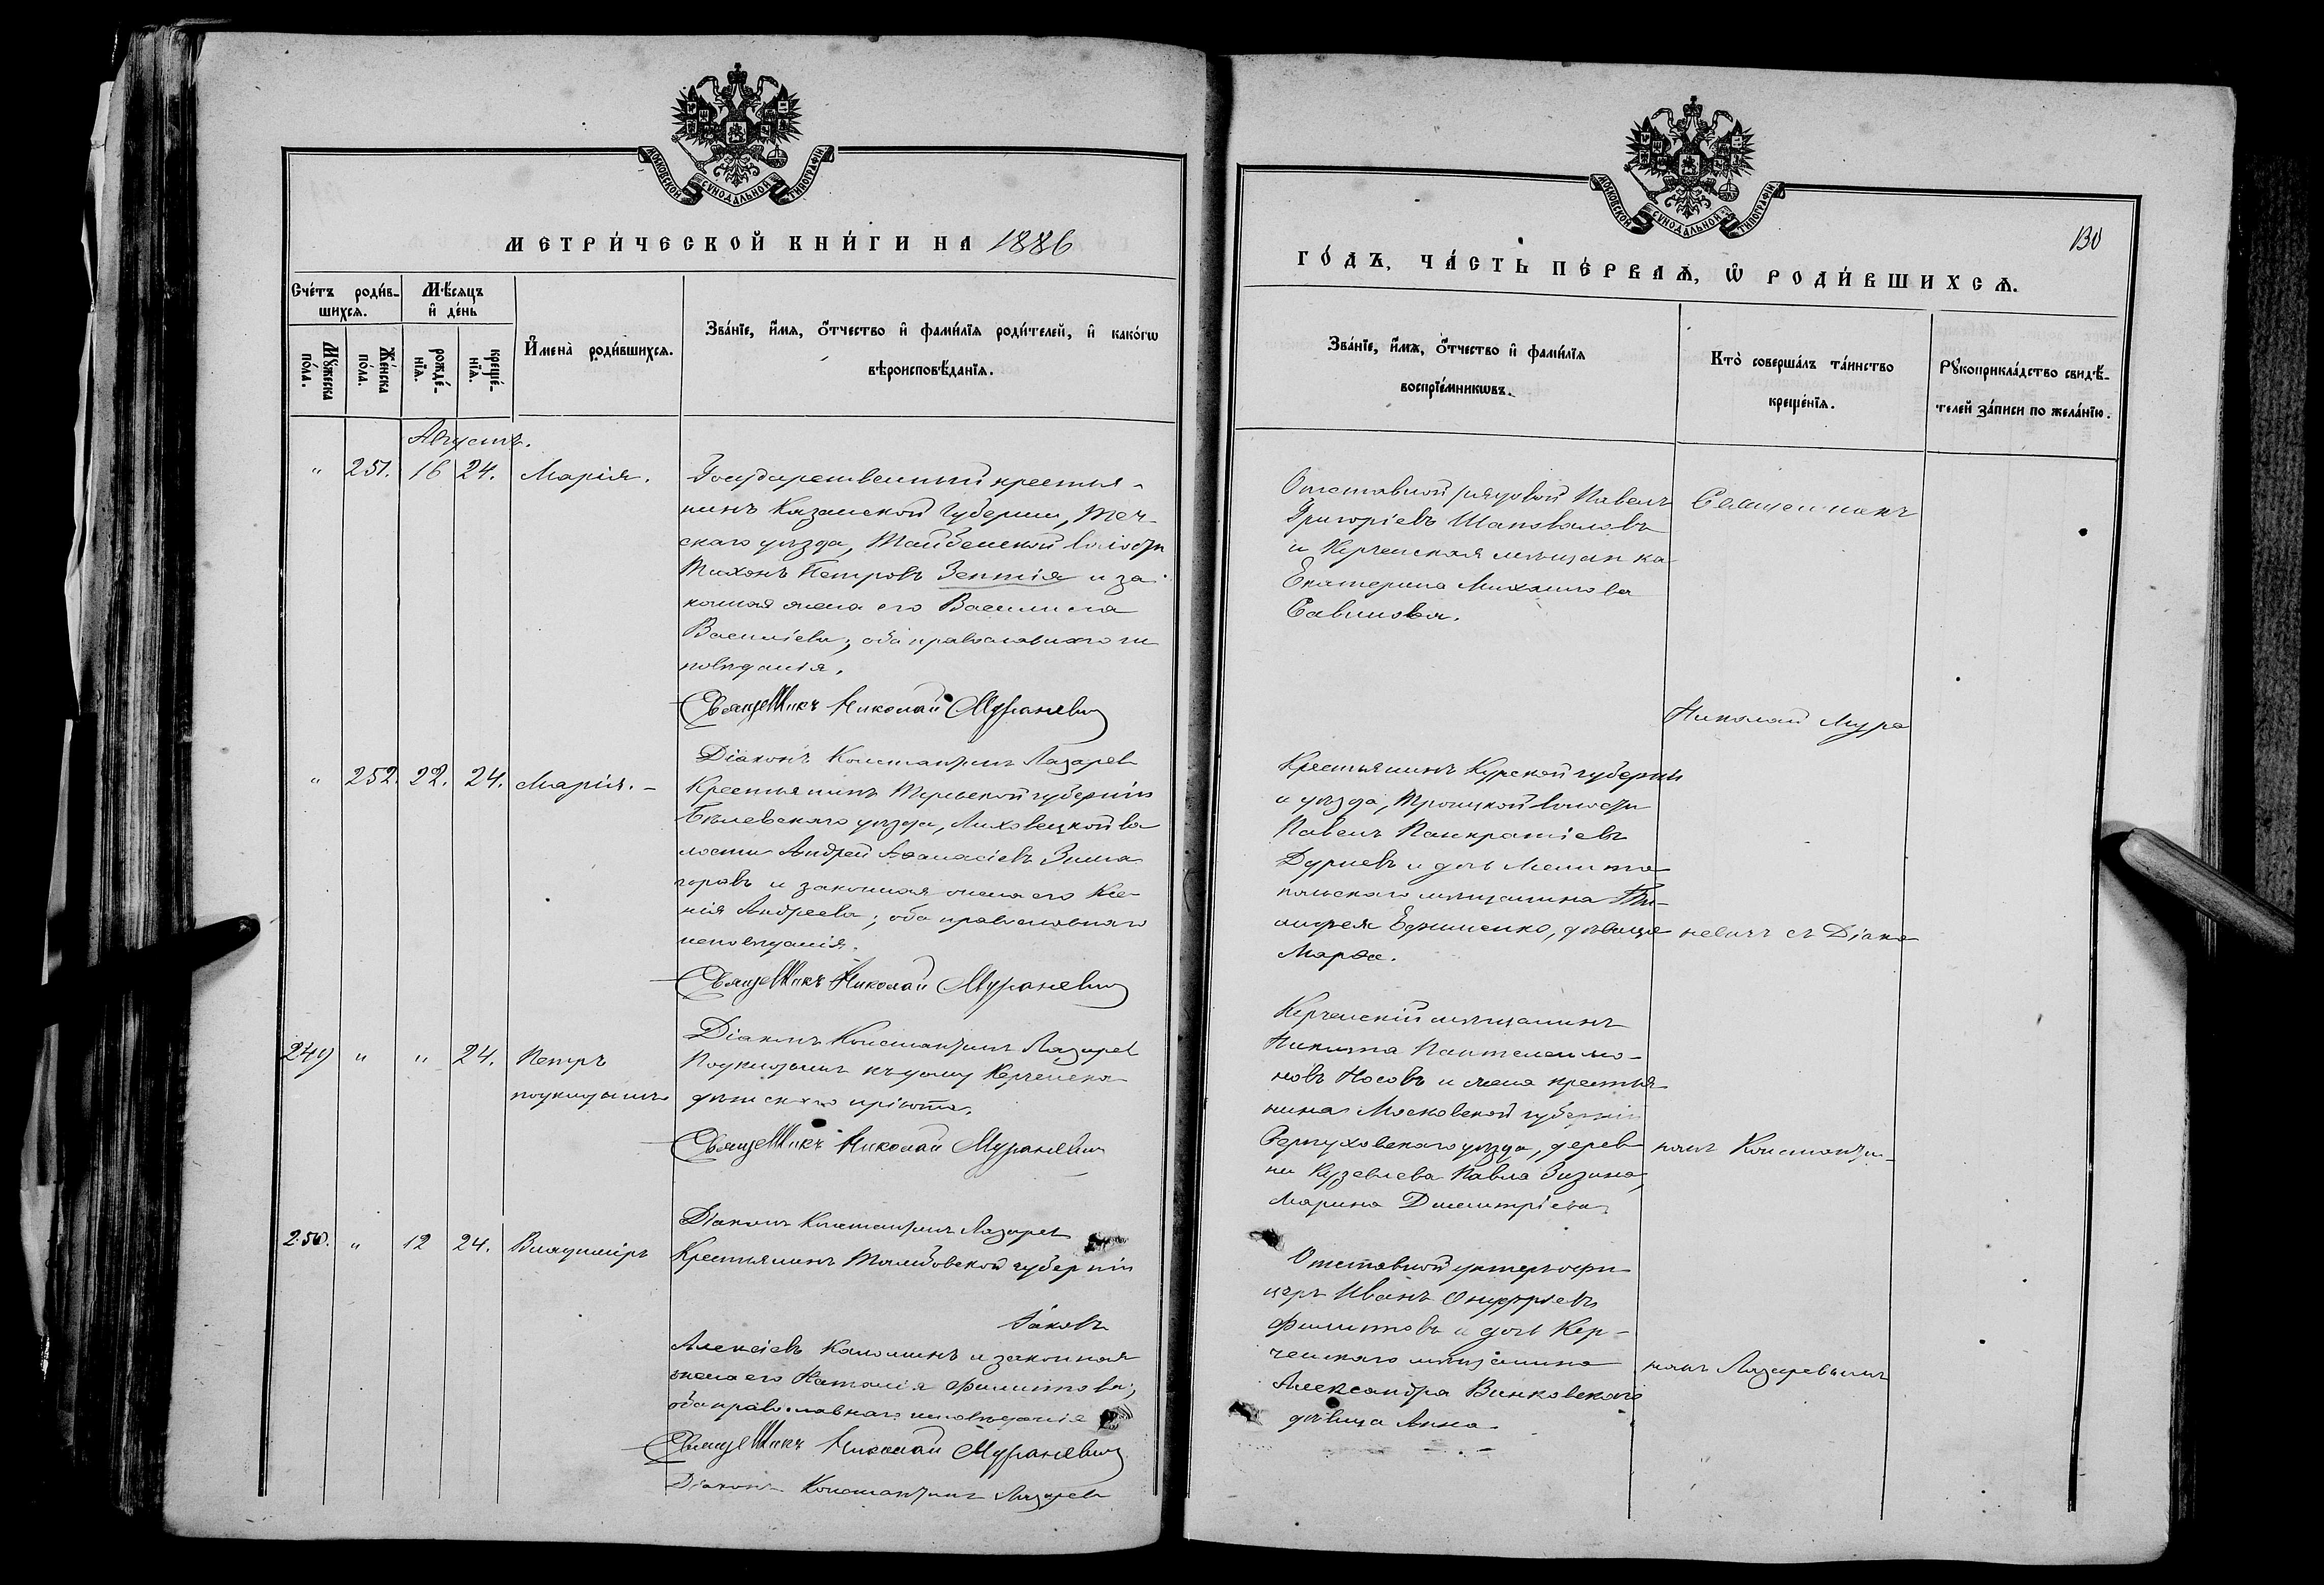 МОСКОВСКОЙ СѴНОДАЛЬНОЙ ТИПОГРАФІИ
МЕТРИ́ЧЕСКОЙ КНИ́ГИ НА 1886
Сче́тъ роди́в-
шихсѧ.
Мѣ́сяцъ
и҆ де́нь
Мꙋ́жеска
по́ла.
Же́нска
по́ла.
рожде́-
нїѧ.
креще́-
нїѧ.
И҆мена̀ роди́вшихсѧ.
Зва́нїе, и҆́мѧ, ѻ҆́тчество и҆ фами́лїѧ роди́телей, и҆ како́гѡ
вѣроисповѣ́данїѧ.
Августъ.
" 251. 16 24. Марія.
Государственный крестья-
нинъ Казанской Губерніи,
скаго уѣзда, волости
Тихонъ Петровъ и за-
конная жена его Василиса
Васильева, оба православнаго ис
повѣданія.
Священникъ Николай Мураневичъ
Діаконъ Константинъ Лазарев
" 252. 22. 24. Марія. -
Крестьянинъ губерніи
Бѣлевскаго уѣзда, во
лости Андрей Аѳанасіевъ Зима
горовъ и законная жена его Ксе-
нія Андреева; оба православнаго
исповѣданія.
Священникъ Николай Мураневичъ
Діаконъ Константинъ Лазарев
249 " " 24. Петръ
подкидышъ
Подкидышъ къ дому Керченска
дѣтскаго пріюта.
Священникъ Николай Мураневичъ
Діаконъ Константинъ Лазарев
250. " 12 24. Владиміръ
Крестьянинъ Тамбовской губерніи
Іаковъ
Алексіевъ Каломинъ и законная
жена его Наталія Филиппова;
оба православнаго исповѣданія
Священникъ Николай Мураневичъ
Діаконъ Константинъ Лазарев
МОСКОВСКОЙ СѴНОДАЛЬНОЙ ТИПОГРАФІИ
130
ГО́ДЪ, ЧА́СТЬ ПЕ́РВАѦ, Ѡ҆ РОДИ́ВШИХСѦ.
Зва́нїе, и҆́мѧ, ѻ҆́тчество и҆ фами́лїѧ
воспрїе́мникѡвъ.
Кто̀ соверша́лъ та́инство
креще́нїѧ.
Рꙋкоприкла́дство свидѣ́-
телей за́писи по жела́нїю.
Отставной рядовой Павелъ
Григоріевъ Шаповаловъ
и Керченская мѣщанка
Екатерина Михаилова
Савинова.
Священникъ
Николай Мура
Крестьянинъ Курской губерніи
и уѣзда, Троицкой волости
Павелъ Панкратіевъ
Дурневъ и дочь Мелито
польскаго мѣщанина Ти-
моѳея Ефименко, дѣвица
Марѳа.
невичъ съ Діако
Керченскій мѣщанинъ
Никита Пантелеимо-
новъ Носовъ и жена крестья-
нина Московской губерніи
Серпуховскаго уѣзда, дерев
ни Павла Зизина,
Марина Димитріева.
номъ Константи-
Отставной унтеръ-офи-
церъ Иванъ Онуфріевъ
Филиповъ и дочь Кер-
ченскаго мѣщанина
Александра Винковскаго
дѣвица Анна.
номъ Лазаревымъ